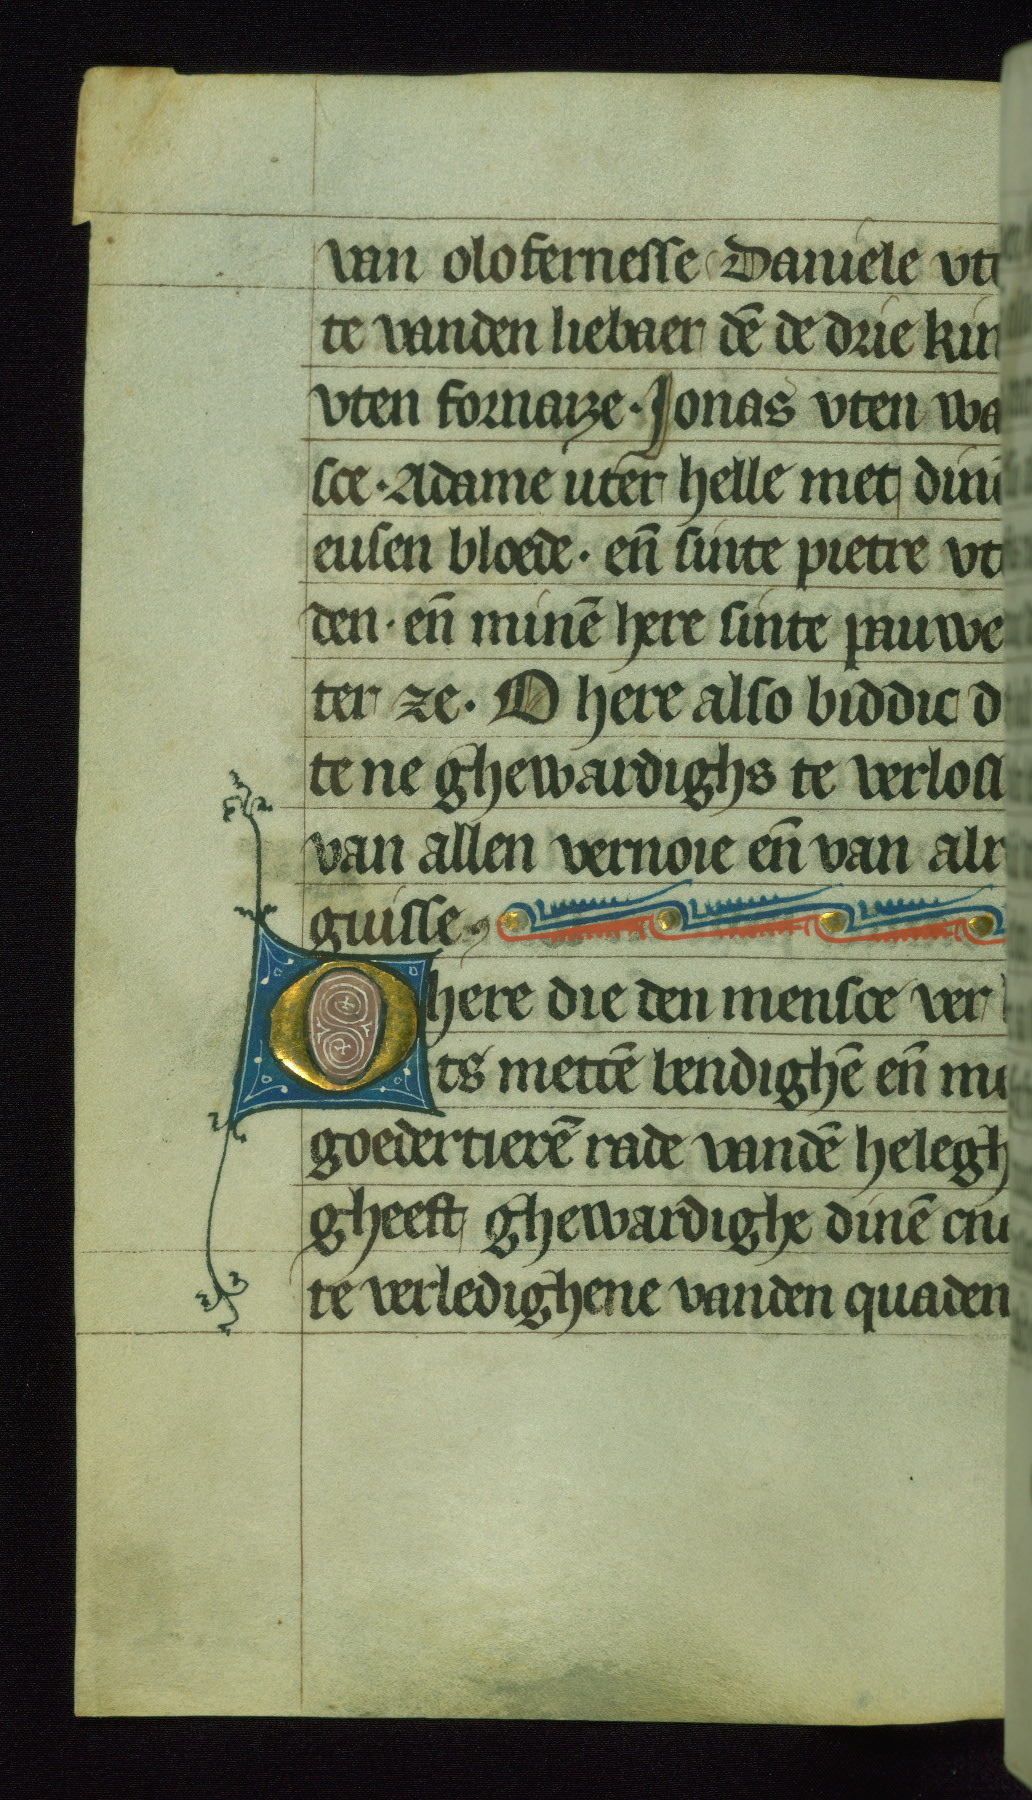 van olofernesse Daniele vt
te vanden liebaer dē de drie kin
vten fornaize · Jonas vten wa
sce · Adame uter helle met
eusen bloede · en̄ sinte pietre vt
den · en̄ minē here sinte pauwe
ter ze · O here also biddic d
tene ghewardighs te verloss
van allen vernoie en̄ van alr
guisse
O here die den mensce ver
ts mettē lendighē en̄
goedertierē rade vandē helegh
gheest ghewardighe dinē
te verledighene vanden quaden